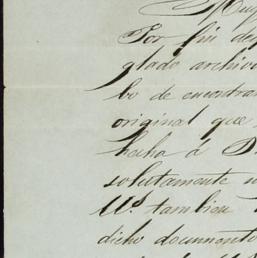 Muy
Por fin des
glado archivo
bo de encontrar
original que
hecha á D.
solutamente
Us. tambien
dicho documento